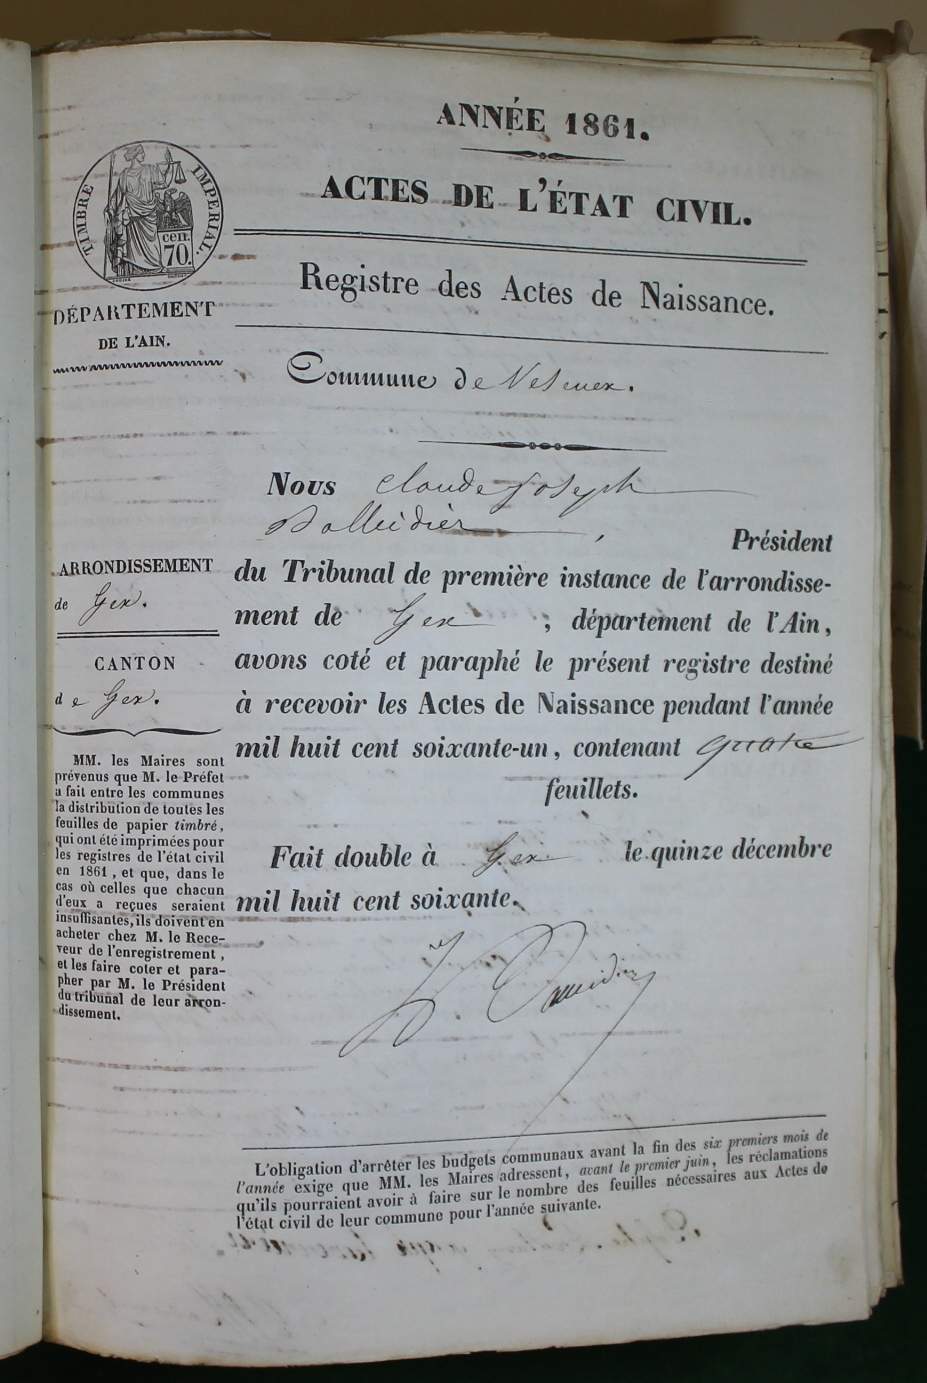 ANNÉE 1861.
ACTES DE L'ÉTAT CIVIL.
TIMBRE IMPERIAL.
cen.
70.
DÉPARTEMENT
DE L'AIN.
Registre des Actes de Naissance.
Commune de Vesenex.
Nous Claude Joseph
, Président
du Tribunal de première instance de l'arrondisse-
ment de Gex ; département de l'Ain,
avons coté et paraphé le présent registre destiné
à recevoir les Actes de Naissance pendant l'année
mil huit cent soixante-un, contenant quatre
feuillets.
Fait double à Gex le quinze décembre
mil huit cent soixante.
ARRONDISSEMENT
de Gex.
CANTON
de Gex.
MM. les Maires sont
prévenus que M. le Préfet
a fait entre les communes
la distribution de toutes les
feuilles de papier timbré,
qui ont été imprimées pour
les registres de l'état civil
en 1861, et que, dans le
cas où celles que chacun
d'eux a reçues seraient
insuffisantes, ils doivent en
acheter chez M. le Rece-
veur de l'enregistrement,
et les faire coter et para-
pher par M. le Président
du tribunal de leur arron-
dissement.
L'obligation d'arrêter les budgets communaux avant la fin des six premiers mois de
l'année exige que MM. les Maires adressent, avant le premier juin, les réclamations
qu'ils pourraient avoir à faire sur le nombre des feuilles nécessaires aux Actes de
l'état civil de leur commune pour l'année suivante.